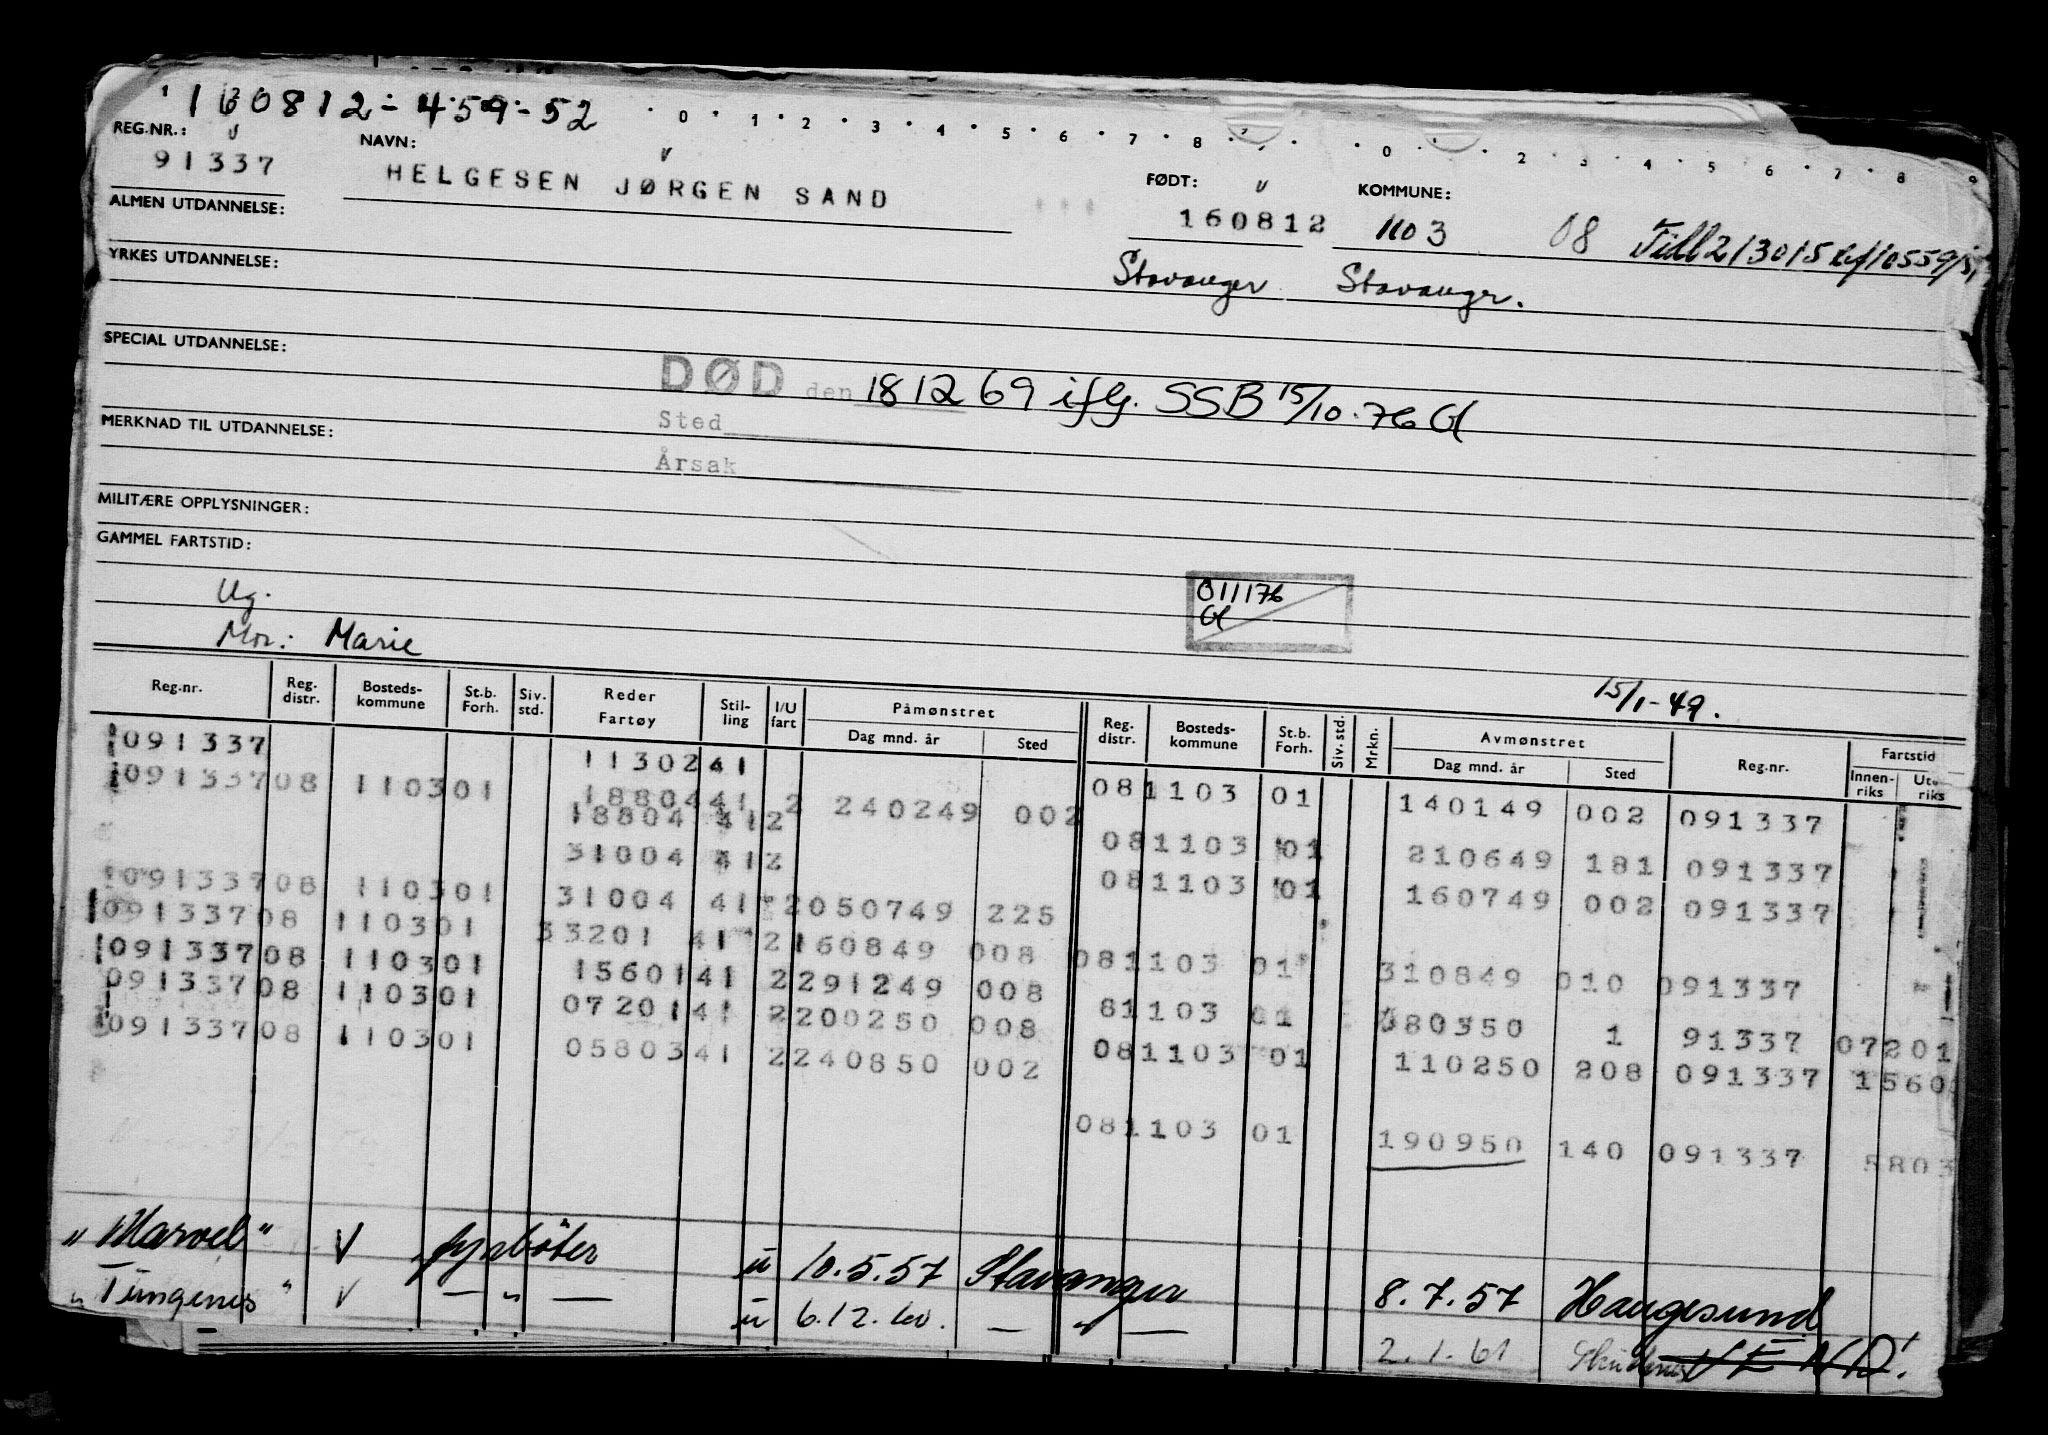 160812-459-52
0 1 2 3 4 5 6 7 8 0 2 3 4 5 6 7 8 9
REG.NR.: NAVN: FØDT: KOMMUNE:
91337 HELGESEN JØRGEN SAND 160812 1103 08
ALMEN UTDANNELSE:
Stavanger Stavanger.
YRKES UTDANNELSE:
SPECIAL UTDANNELSE:
DØD den 181269 iflg. SSB 15/10-76 Gl
Sted
MERKNAD TIL UTDANNELSE:
Årsak
MILITÆRE OPPLYSNINGER:
GAMMEL FARTSTID:
Ug.
011176
Gl
Mor: Marie
15/1-49.
Reg.nr. Reg. distr. Bosteds-kommune St.b. Forh. Siv. std. Reder Fartøy Stil-ling I/U fart Påmønstret Dag mnd. år Sted Reg. distr. Bosteds-kommune St.b. Forh. Siv. std. Mrkn. Avmønstret Dag mnd. år Sted Reg.nr. Fartstid Innen-riks Uten-riks
091337 11302 41 08 1103 01 140149 002 091337
091337 08 1103 01 18804 41 2 240249 002
18804 41 2 08 1103 01 210649 181 091337
31004 41 2 08 1103 01 160749 002 091337
091337 08 1103 01 31004 41 2 050749 225
091337 08 1103 01 33201 41 2 160849 008 08 1103 01 310849 010 091337
091337 08 1103 01 15601 41 2 291249 008 8 1103 01 080350 1 91337 07201
091337 08 1103 01 07201 41 2 200250 008 08 1103 01 110250 208 091337 1560
091337 08 1103 01 05803 41 2 240850 002
08 1103 01 190950 140 091337 5803
"Marvel" V fyrbøter u 10.5.57 Stavanger 8.7.57 Haugesund
"Tungenes" V — " — u 6.12.60. — " — 2.1.61 Skudenes